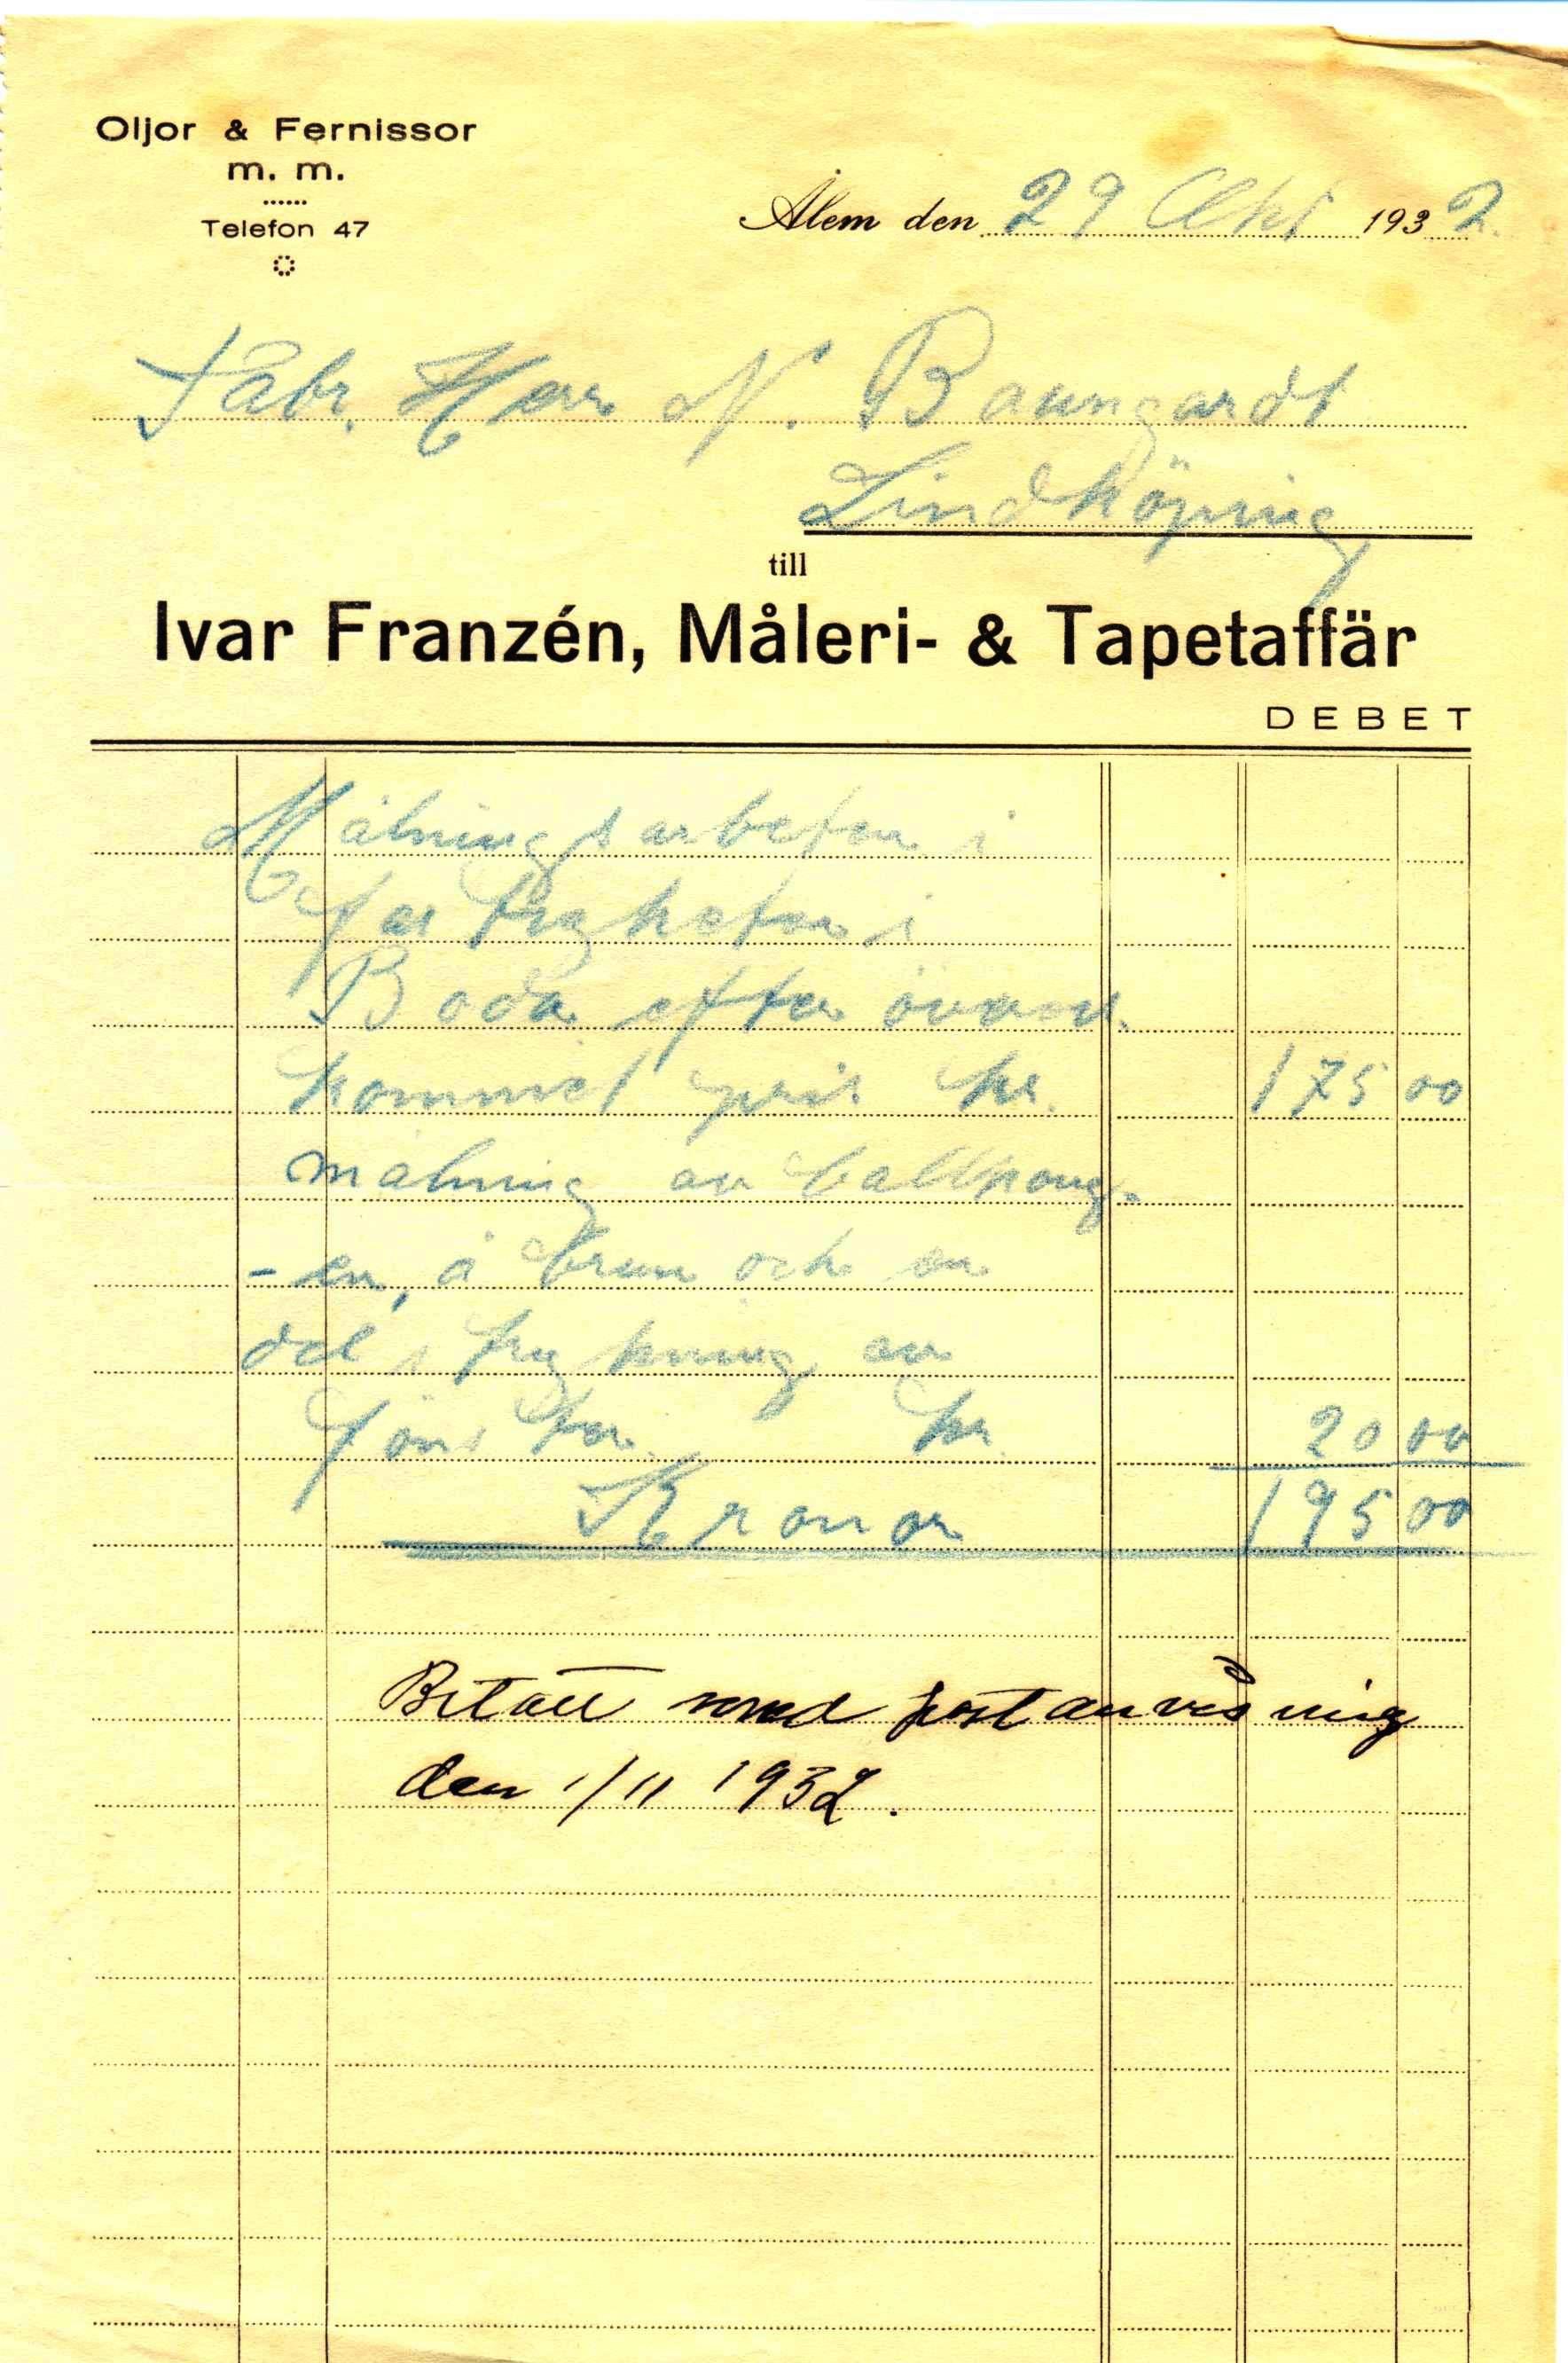 Oljor & Fernissor
m. m.
Telefon 47
Ålem den 29 Okt 1932.
Fabr. Herr N. Baungardt
Lindköping
till
Ivar Franzén, Måleri- & Tapetaffär
DEBET
Målningsarbeten i
fastigheten i
Boda efter överens.
kommet pris kr. 175 00
målning av ballkong-
-en, å brun och en
del strykning av
fönster kr. 20 00
Kronor 195 00
Betalt med postanvisning
den 1/11 1932.